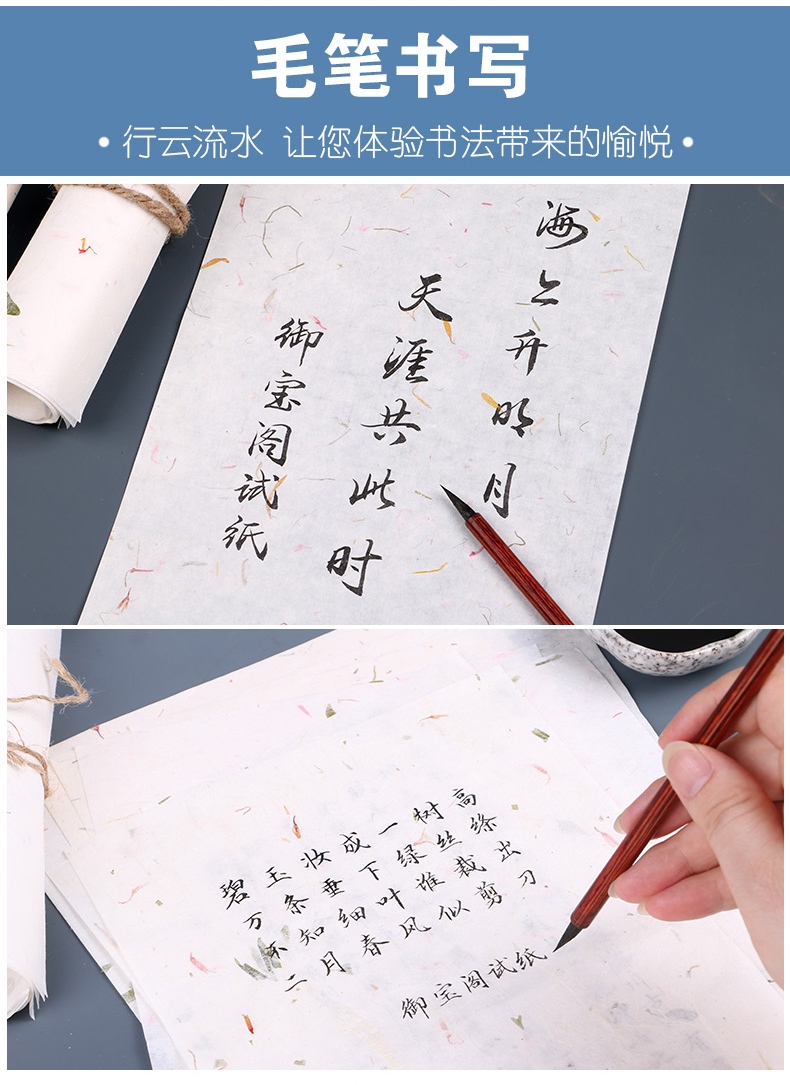 毛笔书写
• 行云流水 让您体验书法带来的愉悦 •
海上升明月
天涯共此时
御宝阁试纸
碧玉妆成一树高
万条垂下绿丝绦
不知细叶谁裁出
二月春风似剪刀
御宝阁试纸